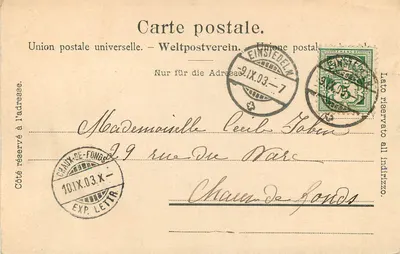 Carte postale.
Union postale universelle. – Weltpostverein. – Unione postale
Nur für die Adresse.
Côté réservé à l'adresse.
Lato riservato all indirizzo.
EINSIEDELN
-9.IX.03.–7
EINSIEDELN
Mademoiselle Cecile
29 rue du Parc
Chaux de fonds
CHAUX-DE-FONDS
10.IX.03.X–
EXP. LETTR